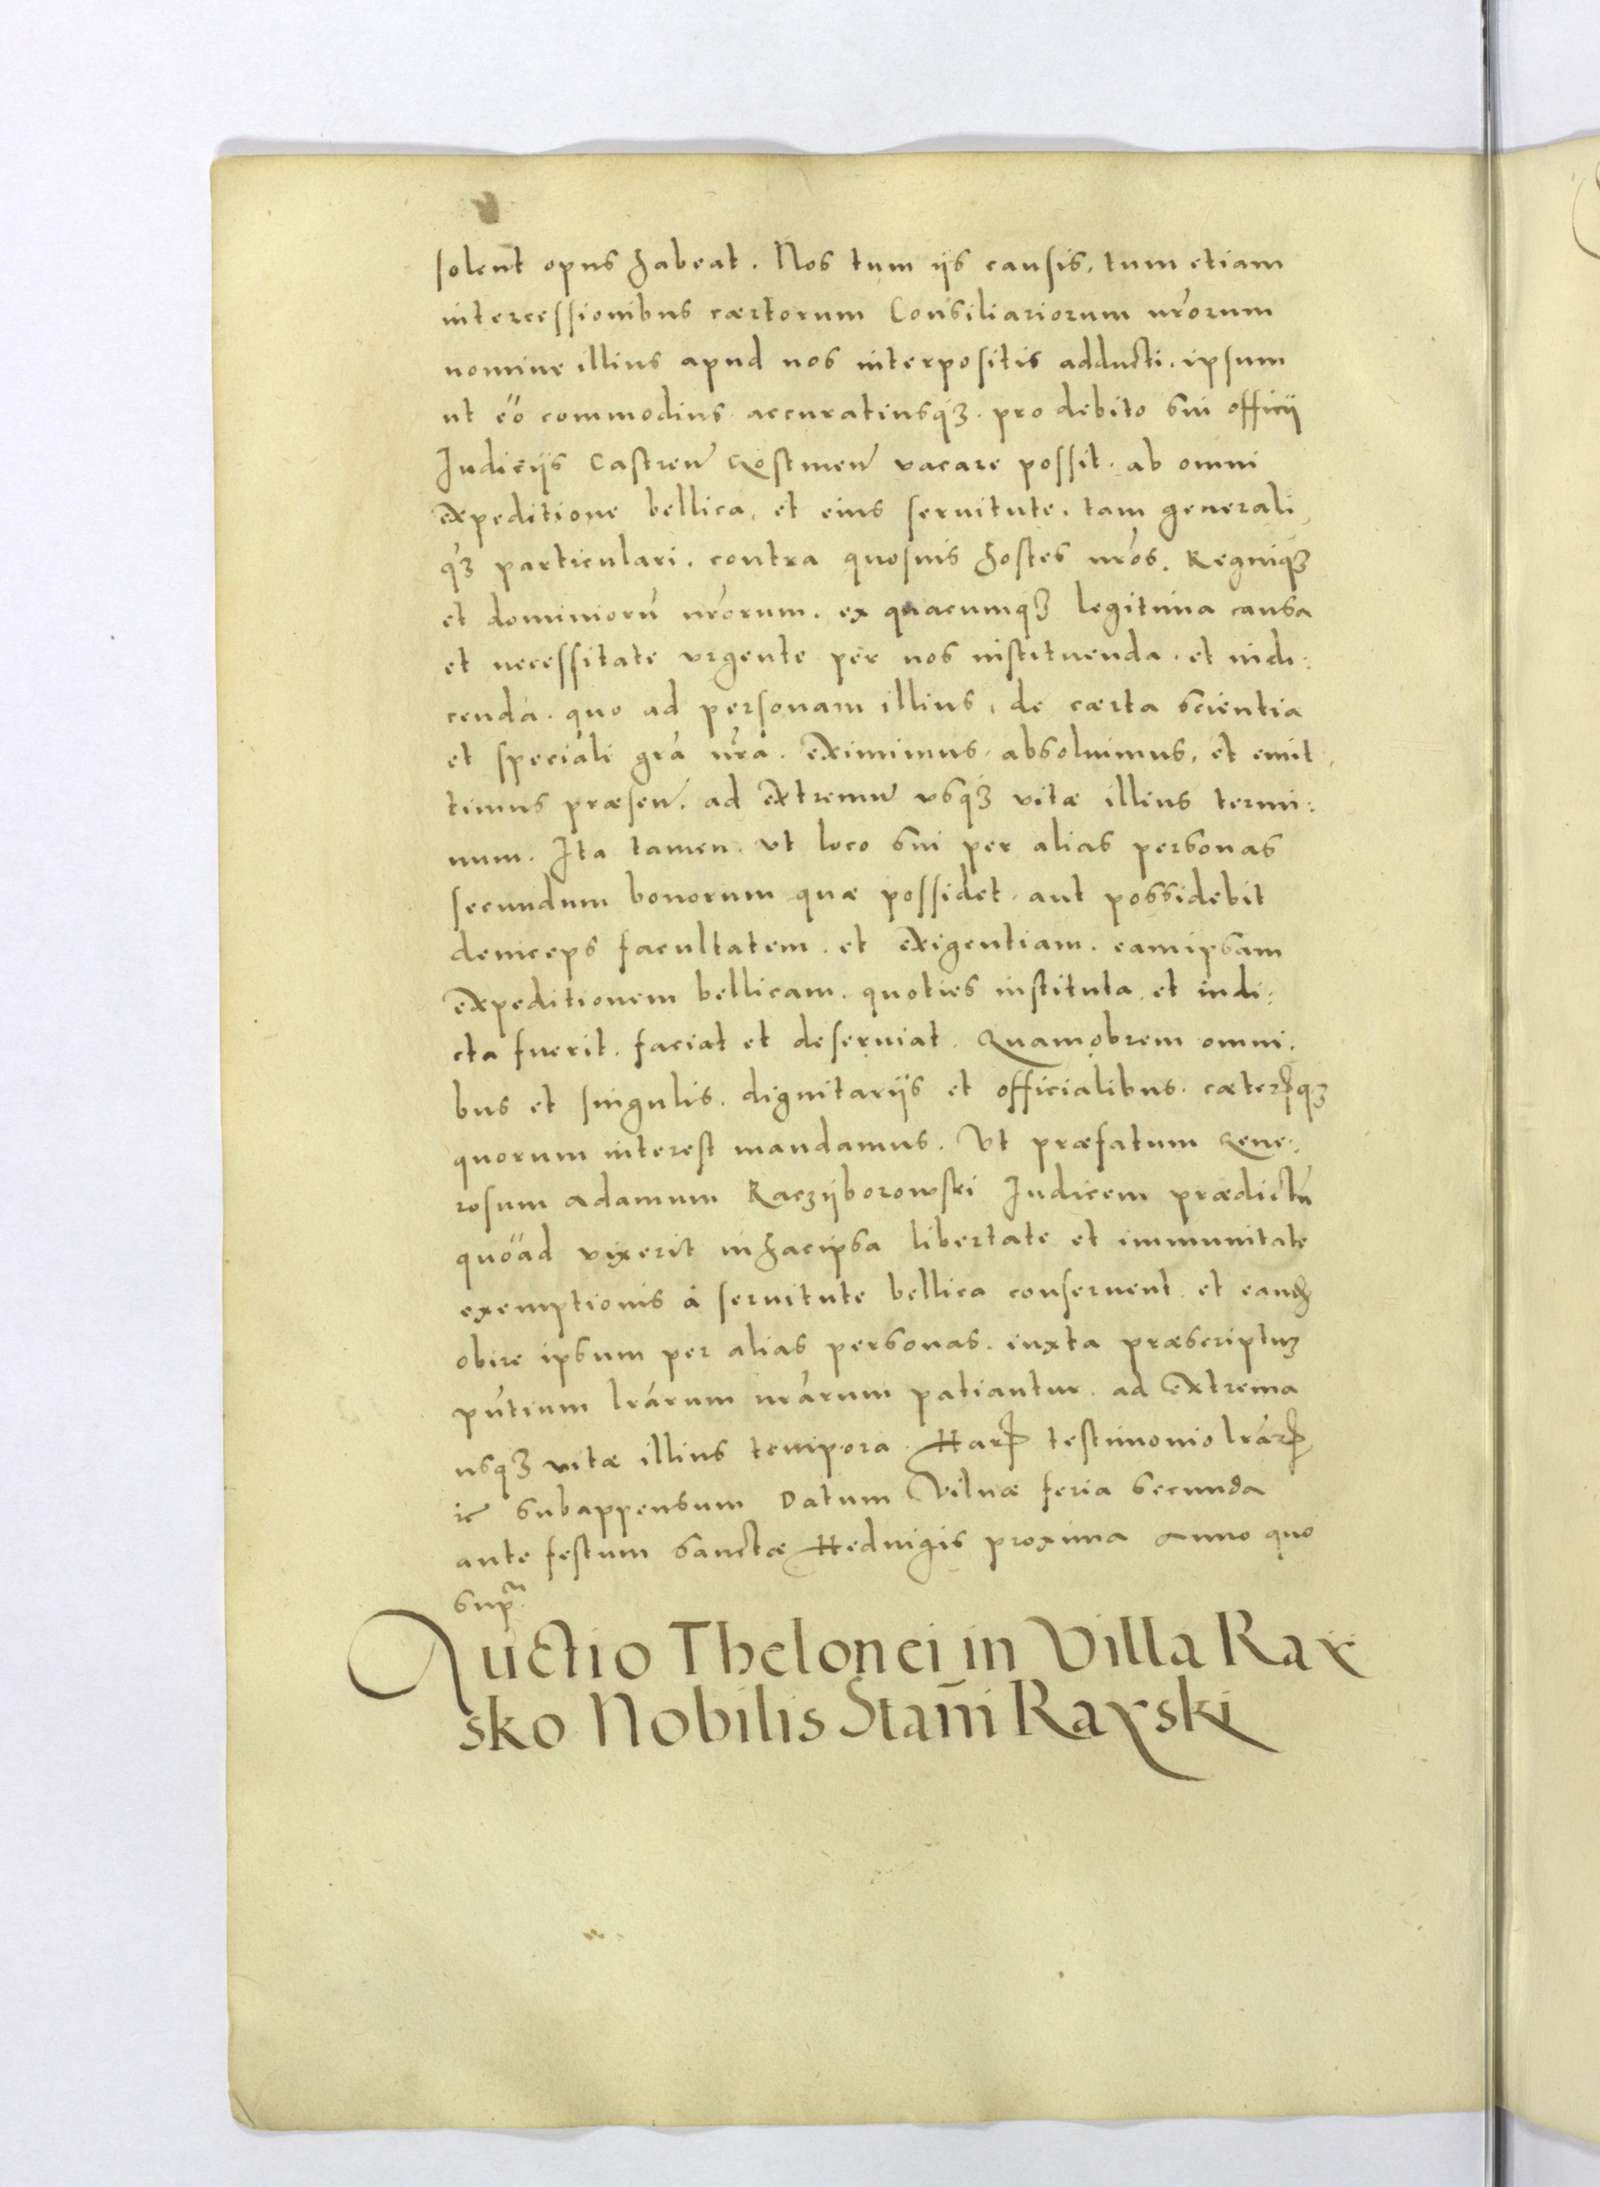 solent opus habeat. Nos tum ijs causis, tum etiam
intercessionibus cærtorum Consiliariorum nrorum
nomine illius apud nos interpositis adducti, ipsum
ut eo commodius accuratiusq3 pro debito sui officij
Iudicijs Castren̄ Gostinen̄ vacare possit, ab omni
expeditione bellica, et eius seruitute, tam generali,
q̃3 particulari, contra quosuis hostes nros, Regniq3
et dominiorū nrorum, ex quacumq3 legitima causa
et necessitate urgente per nos instituenda, et indi:
cenda, quo ad personam illius, de cærta scientia
et speciali gra nra, eximimus, absoluimus, et emit
timus præsen̄. ad extremum usq3 vitæ illius termi:
num. Ita tamen, ut loco sui per alias personas
secundum bonorum quæ possidet, aut possidebit
deinceps facultatem, et exigentiam, eamipsam
expeditionem bellicam, quoties instituta, et indi:
cta fuerit, faciat et deseruiat. Quamobrem omni.
bus et singulis, dignitarijs et officialibus, cæterꝝq3
quorum interest mandamus. Ut præfatum Gene:
rosum Adamum Raczijborowski Iudicem prædictū
quoad vixerit in hacipsa libertate et immunitate
exemptionis à seruitute bellica conseruent, et eandē
obire ipsum per alias personas, iuxta præscriptum
pn̄tium lrarum nrarum patiantur, ad extrema
usq3 vitæ illius tempora. Harꝝ testimonio lrarꝝ,
ic subappensum Datum Vilnæ feria secunda
ante festum sanctæ Heduigis proxima Anno quo
supra.
Auctio Thelonei in Villa Rax
sko Nobilis Stañi Raxski